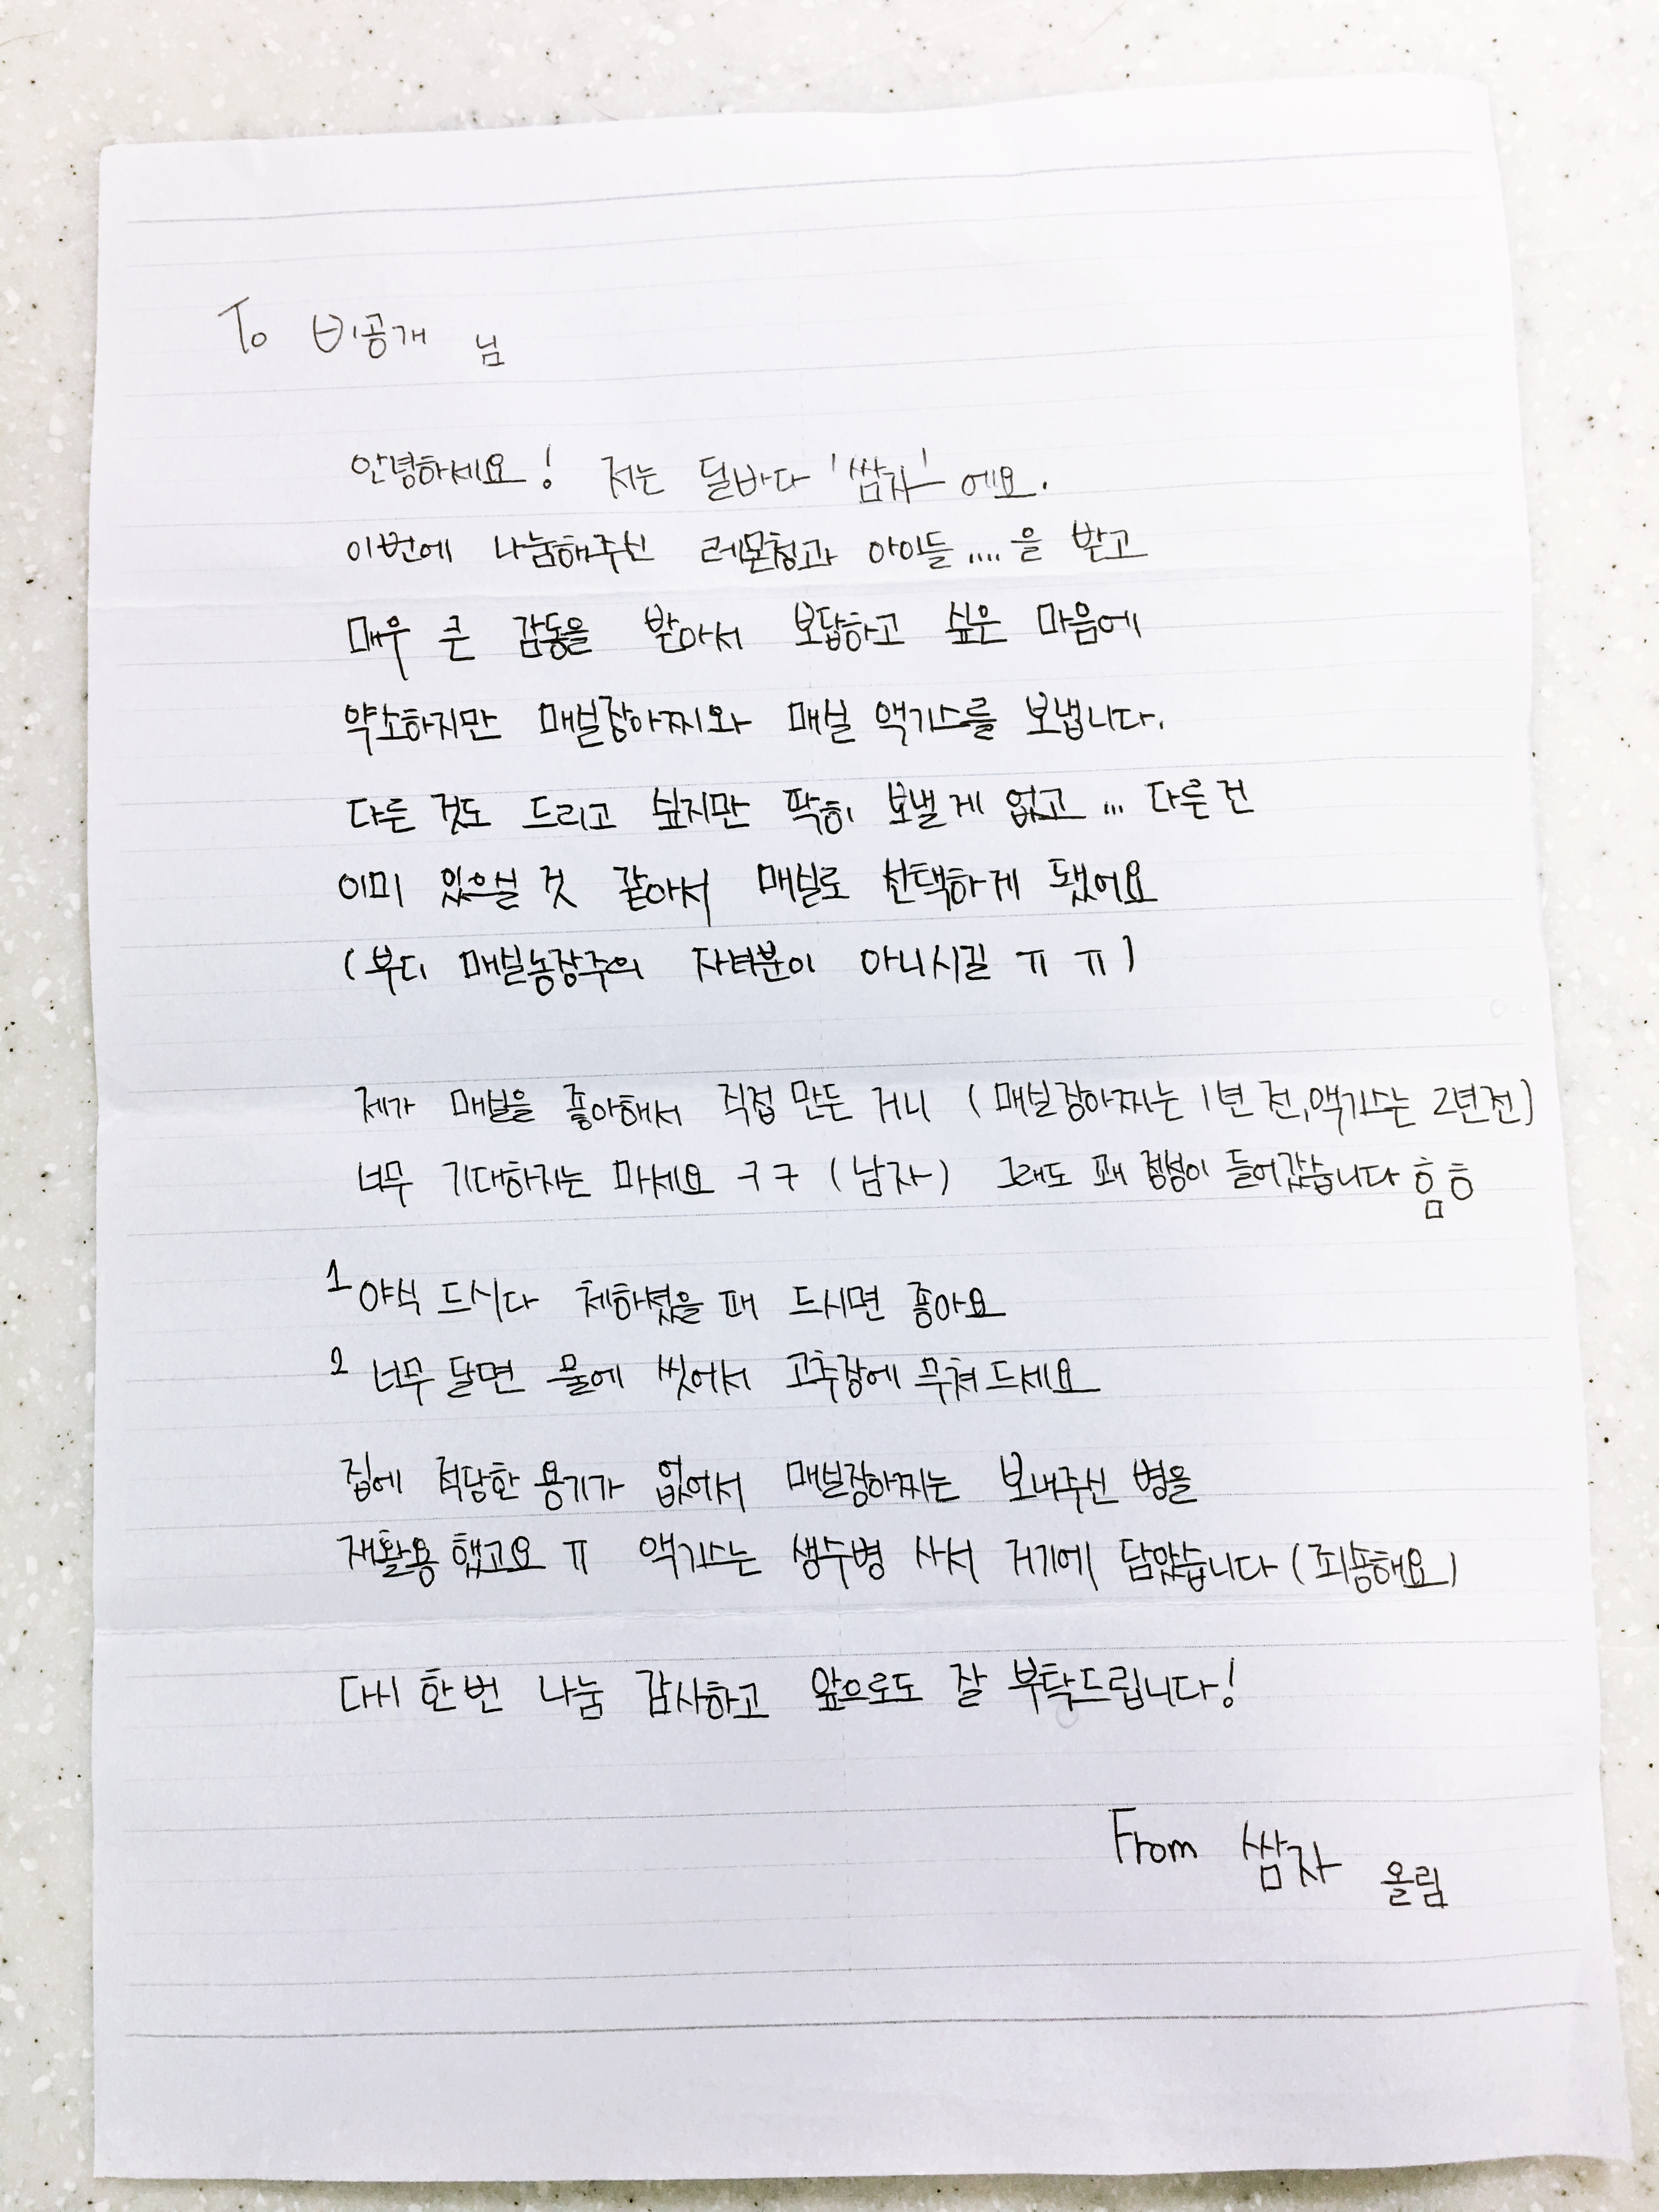 To 비공개 님
안녕하세요! 저는 딜바다 '쌈자' 에요.
이번에 나눔해주신 레몬청과 아이들....을 받고
매우 큰 감동을 받아서 보답하고 싶은 마음에
약소하지만 매실장아찌와 매실 액기스를 보냅니다.
다른 것도 드리고 싶지만 딱히 보낼게 없고... 다른건
이미 있으실 것 같아서 매실로 선택하게 됐어요
(부디 매실농장주의 자녀분이 아니시길 ㅠㅠ)
제가 매실을 좋아해서 직접 만든 거니 (매실장아찌는 1년 전, 액기스는 2년전)
너무 기대하지는 마세요 ㅋㅋ (남자) 그래도 꽤 정성이 들어갔습니다 흠흐
1 야식 드시다 체하셨을 때 드시면 좋아요
2 너무 달면 물에 씻어서 고추장에 무쳐드세요
집에 적당한 용기가 없어서 매실장아찌는 보내주신 병을
재활용 했고요 ㅠ 액기스는 생수병 사서 거기에 담았습니다 (죄송해요)
다시 한번 나눔 감사하고 앞으로도 잘 부탁드립니다!
From 쌈자 올림